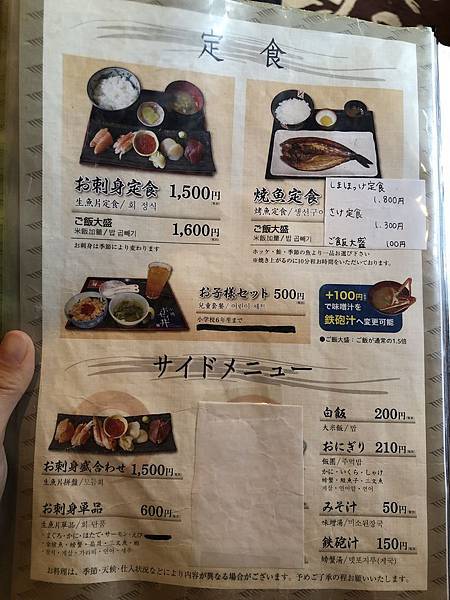 定食
お刺身定食 1,500円
生魚片定食/회 정식
ご飯大盛 1,600円
米飯加量/밥 곱빼기
お刺身は季節により変わります
焼魚定食
烤魚定食/생선구이
ご飯大盛
米飯加量/밥 곱빼기
しまほっけ定食
1,800円
さけ定食
1,300円
ご飯大盛 100円
ホッケ・鮭・季節の魚より一品お選び下さい
※焼き上がるのに10分程お時間をいただいております。
お子様セット 500円
兒童套餐/어린이 세트
小学校6年生まで
+100円
で味噌汁を
鉄砲汁へ変更可能
●ご飯大盛:ご飯が通常の1.5倍
サイドメニュー
お刺身盛合わせ 1,500円
生魚片拼盤/모듬회
お刺身単品 600円
生魚片單品/회 단품
まぐろ・かに・ほたて・サーモン・えび
白飯 200円
大米飯/밥
おにぎり 210円
飯團/주먹밥
かに・いくら・しゃけ
螃蟹・鮭魚子・三文魚
게살・연어알・연어
みそ汁 50円
味増湯/미소된장국
鉄砲汁 150円
螃蟹湯/뎃포지루(게국)
お料理は、季節・天候・仕入状況などにより内容が異なる場合がございます。予めご了承の程お願いいたします。